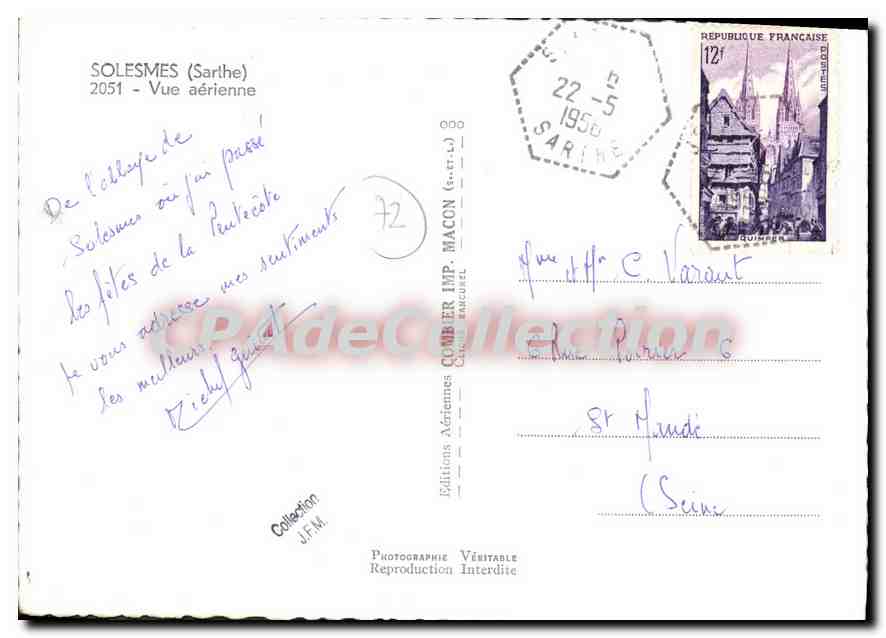 SOLESMES (Sarthe)
2051 - Vue aérienne
De l'abbaye de
Solesmes où j'ai passé
les fêtes de la Pentecôte
je vous adresse mes sentiments
les meilleurs.
Michel
72
Collection
J.F.M.
Editions Aériennes COMBIER IMP. MACON (S.-ET-L.)
CPAdeCollection
PHOTOGRAPHIE VÉRITABLE
Reproduction Interdite
22 -5
SARTHE
REPUBLIQUE FRANÇAISE
12f
POSTES
QUIMPER
Mme et Mr C. Varaut
6 Rue Poirier 6
St Mandé
(Seine